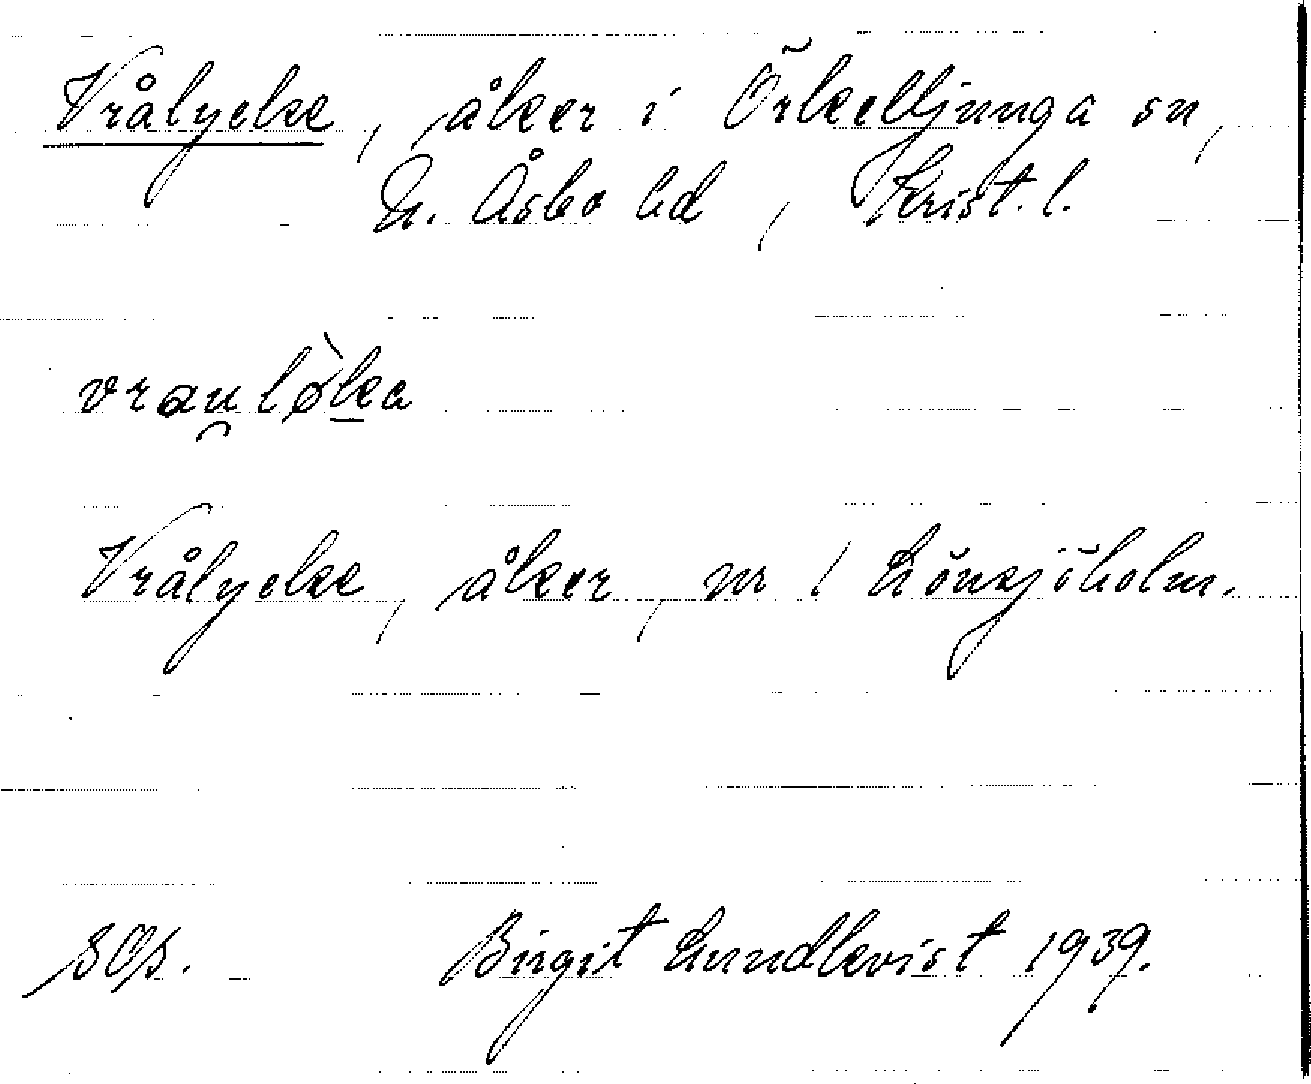 Vrålycke, åker i Örkelljunga sn,
N. Åsbo hd, Krist. l.
vrau̯lø̀ka
Vrålycke, åker, nr 1 Lönsjöholm.
sOs. Birgit Lundkvist 1939.